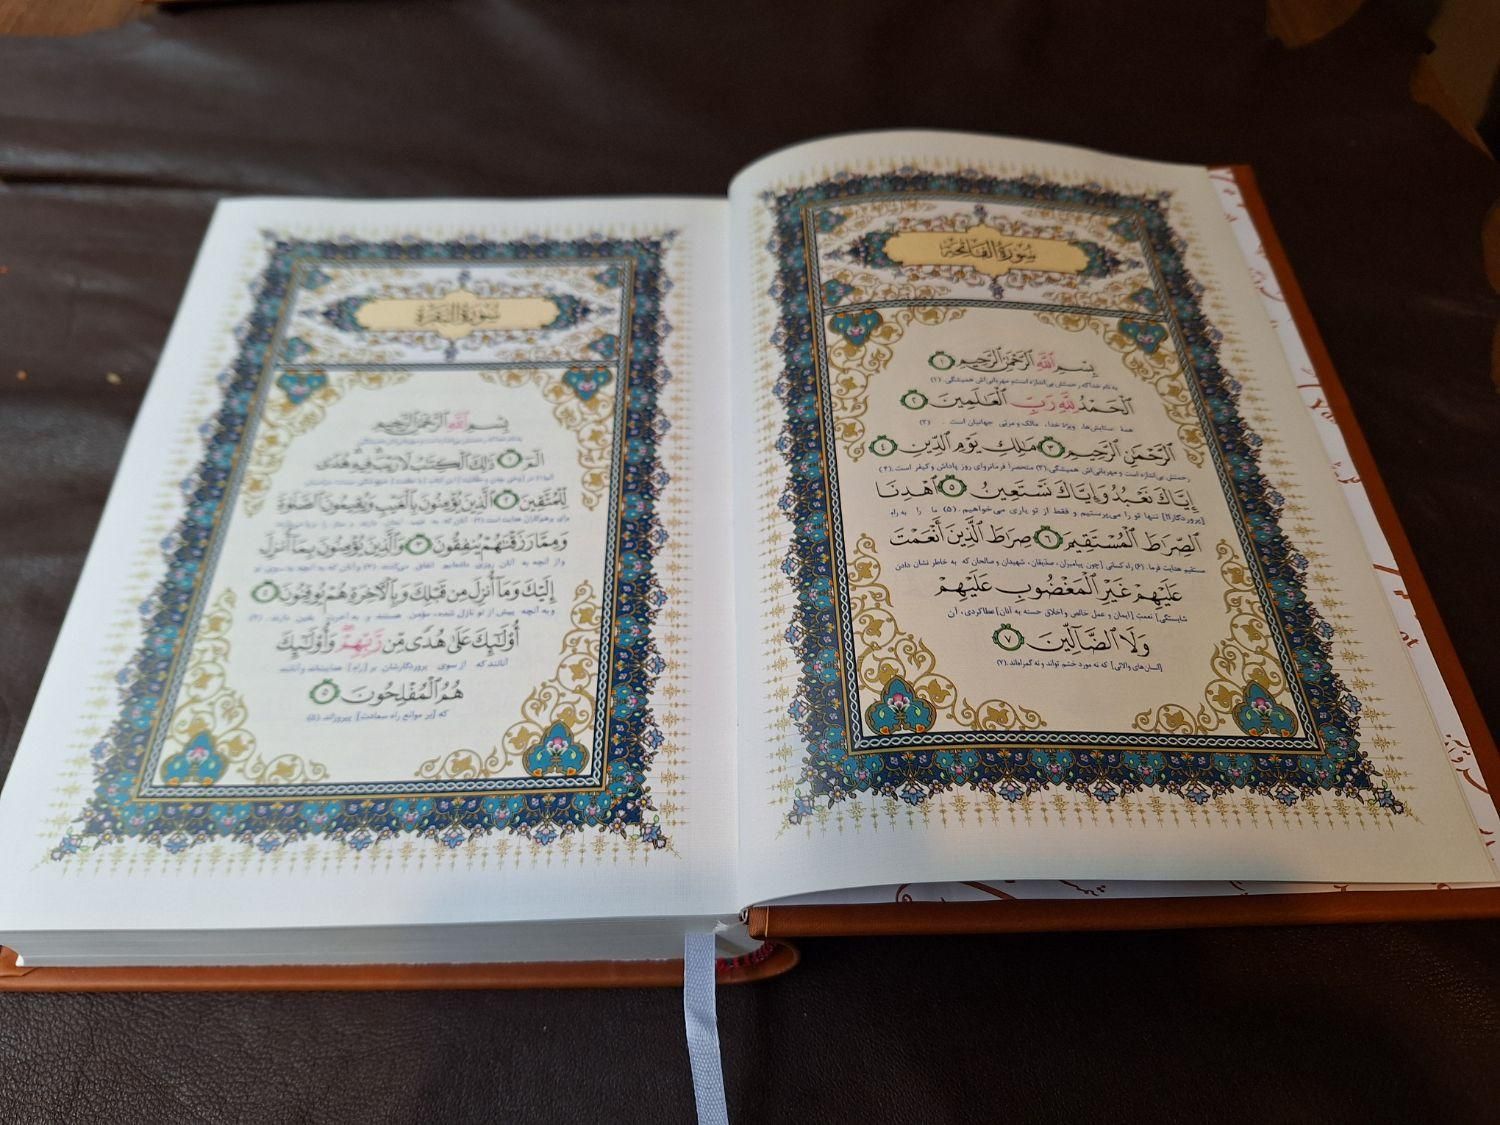 سُورَةُ الفَاتِحَةِ
بِسْمِ ٱللَّهِ ٱلرَّحْمَٰنِ ٱلرَّحِيمِ ١
به نام خدا که رحمتش بی‌اندازه است و مهربانی‌اش همیشگی. (۱)
ٱلْحَمْدُ لِلَّهِ رَبِّ ٱلْعَٰلَمِينَ ٢
همهٔ ستایش‌ها، ویژهٔ خدا، مالک و مربّی جهانیان است. (۲)
ٱلرَّحْمَٰنِ ٱلرَّحِيمِ ٣ مَٰلِكِ يَوْمِ ٱلدِّينِ ٤
رحمتش بی‌اندازه است و مهربانی‌اش همیشگی. (۳) منحصراً فرمانروای روز پاداش و کیفر است. (۴)
إِيَّاكَ نَعْبُدُ وَإِيَّاكَ نَسْتَعِينُ ٥ ٱهْدِنَا
[پروردگارا!] تنها تو را می‌پرستیم و فقط از تو یاری می‌خواهیم. (۵) ما را به راهِ
ٱلصِّرَٰطَ ٱلْمُسْتَقِيمَ ٦ صِرَٰطَ ٱلَّذِينَ أَنْعَمْتَ
مستقیم هدایت فرما. (۶) راه کسانی [چون پیامبران، صدّیقان، شهیدان و صالحان که به خاطر نشان دادن
عَلَيْهِمْ غَيْرِ ٱلْمَغْضُوبِ عَلَيْهِمْ
شایستگی] نعمتِ [ایمان و عمل خالص و اخلاق حسنه به آنان] عطا کردی، آن
وَلَا ٱلضَّآلِّينَ ٧
[انسان‌های والائی] که نه مورد خشم تواند و نه گمراه‌اند. (۷)
سُورَةُ البَقَرَةِ
بِسْمِ ٱللَّهِ ٱلرَّحْمَٰنِ ٱلرَّحِيمِ
به نام خدا که رحمتش بی‌اندازه است و مهربانی‌اش همیشگی
الٓمٓ ١ ذَٰلِكَ ٱلْكِتَٰبُ لَا رَيْبَ فِيهِ هُدًى
لِّلْمُتَّقِينَ ٢ ٱلَّذِينَ يُؤْمِنُونَ بِٱلْغَيْبِ وَيُقِيمُونَ ٱلصَّلَوٰةَ
برای پرهیزکاران هدایت است. (۲) آنان که به غیب ایمان دارند و نماز را برپا می‌دارند
وَمِمَّا رَزَقْنَٰهُمْ يُنفِقُونَ ٣ وَٱلَّذِينَ يُؤْمِنُونَ بِمَآ أُنزِلَ
و از آنچه به آنان روزی داده‌ایم انفاق می‌کنند. (۳) و آنان که به آنچه به سوی تو
إِلَيْكَ وَمَآ أُنزِلَ مِن قَبْلِكَ وَبِٱلْءَاخِرَةِ هُمْ يُوقِنُونَ ٤
و به آنچه پیش از تو نازل شده، مؤمن هستند و به آخرت یقین دارند. (۴)
أُو۟لَٰٓئِكَ عَلَىٰ هُدًى مِّن رَّبِّهِمْ وَأُو۟لَٰٓئِكَ
آنانند که از سوی پروردگارشان بر [راهِ] هدایت‌اند و آنانند
هُمُ ٱلْمُفْلِحُونَ ٥
که [بر موانع راه سعادت] پیروزاند. (۵)